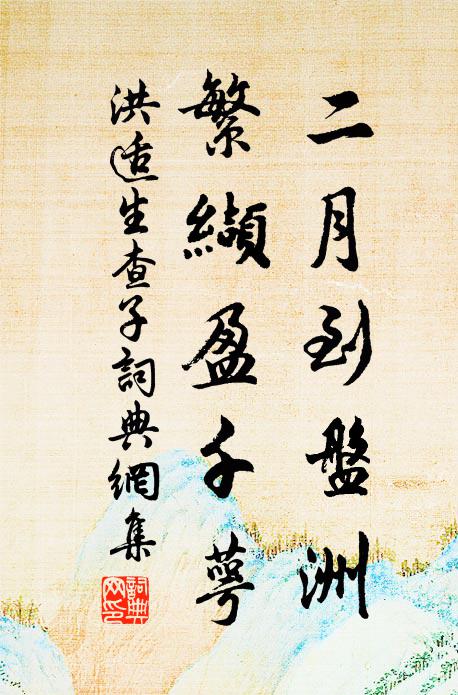 二月到盤洲
繁纈盈千萼
洪适生查子詞典網集
詞典
网印